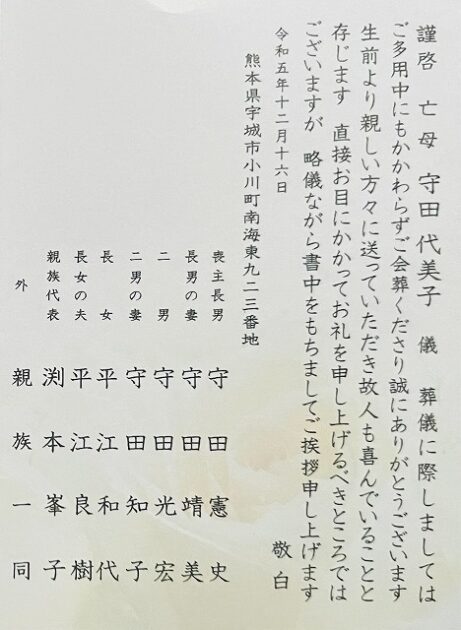 謹啓 亡母 守田代美子 儀 葬儀に際しましては
ご多用中にもかかわらずご会葬くださり誠にありがとうございます
生前より親しい方々に送っていただき故人も喜んでいることと
存じます 直接お目にかかってお礼を申し上げるべきところでは
ございますが 略儀ながら書中をもちましてご挨拶申し上げます
敬白
令和五年十二月十六日
熊本県宇城市小川町南海東九二三番地
喪主長男 守田憲史
長男の妻 守田靖美
二男 守田光宏
二男の妻 守田知子
長女 平江和代
長女の夫 平江良樹
親族代表 渕本峯子
外 親族一同